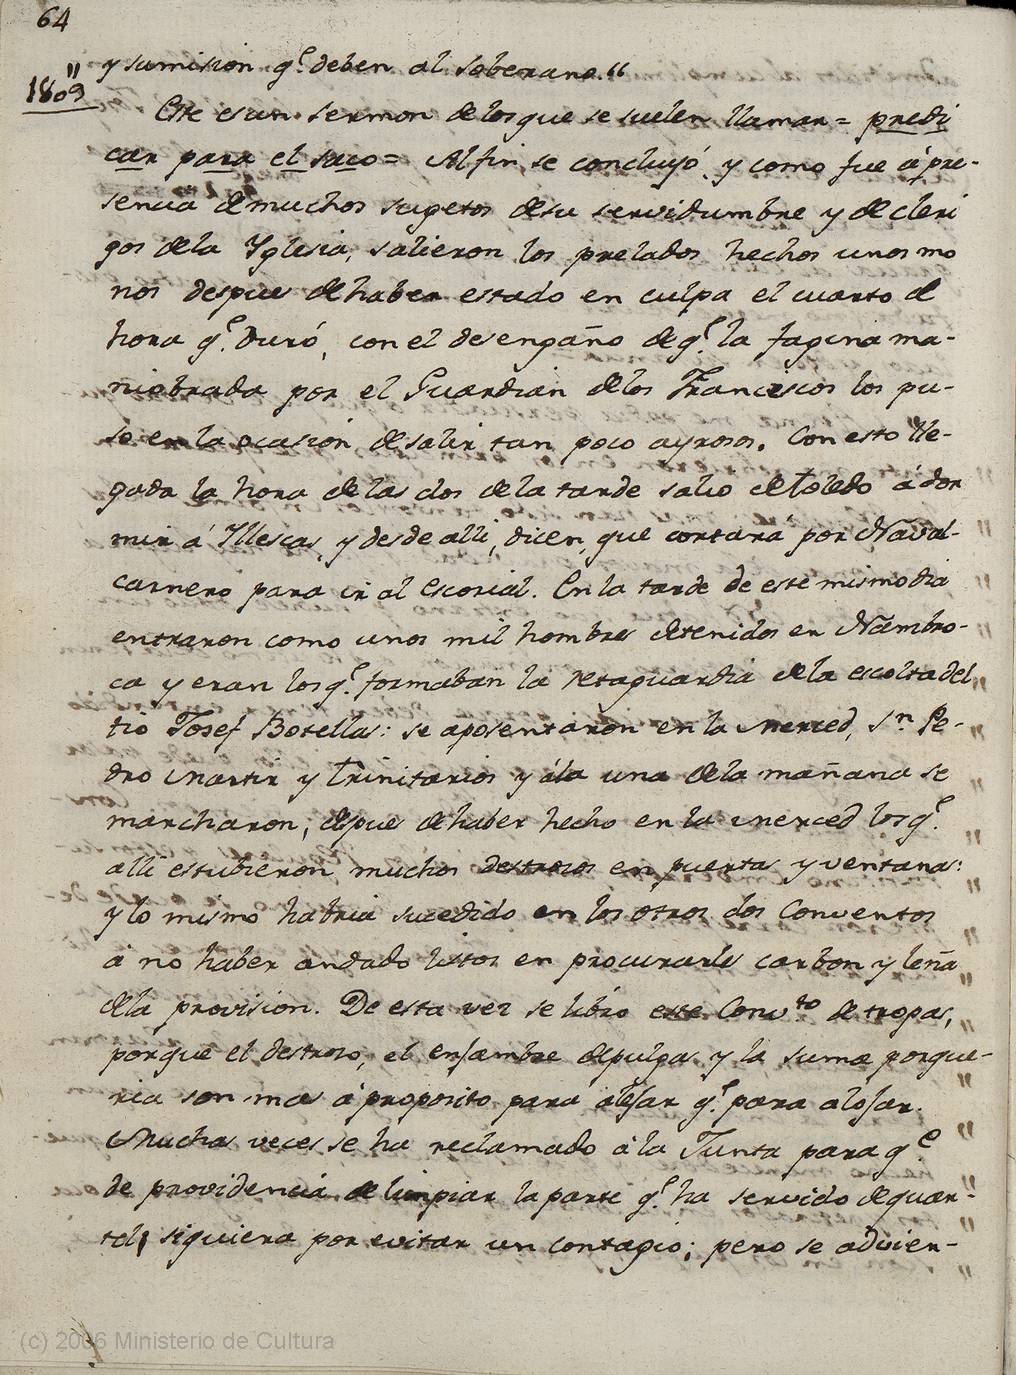 64
y sumision q.e deben al soberano."
1809
Este es un sermon de los que se suelen llamar = predi
car para el saco = Al fin se concluyó, y como fue á pre-
sencia de muchos sugetos de su servidumbre y de cleri
gos de la Yglesia, salieron los prelados hechos unos mo
nos despues de haber estado en culpa el cuarto de
hora q.e duró, con el desengaño de q.e la fagina ma-
niobrada por el Guardian de los Franciscos los pu-
so en la ocasion de salir tan poco ayrosos. Con esto lle-
gada la hora de las dos de la tarde salio de Toledo á dor
mir á Yllescas, y desde alli, dicen, que cortará por Naval-
carnero para ir al Escorial. En la tarde de este mismo dia
entraron como unos mil hombres detenidos en Nambro-
ca y eran los q.e formaban la retaguardia de la escolta del
tio Josef Botellas: se aposentaron en la Merced, S.n Pe-
dro Martir y Trinitarios y á la una de la mañana se
marcharon, despues de haber hecho en la Merced los q.e
alli estubieron muchos destrosos en puertas y ventanas:
y lo mismo habria sucedido en los otros dos Conventos
á no haber andado listos en procurarles carbon y leña
de la provision. De esta vez se libró este Conv.to de tropas,
porque el destroso, el enjambre de pulgas y la suma porque-
ria son mas á proposito para alejar q.e para alojar.
Muchas veces se ha reclamado á la Junta para q.e
de providencia de limpiar la parte q.e ha servido de quar-
tel, siquiera por evitar un contagio; pero se advier-
(c) 2006 Ministerio de Cultura